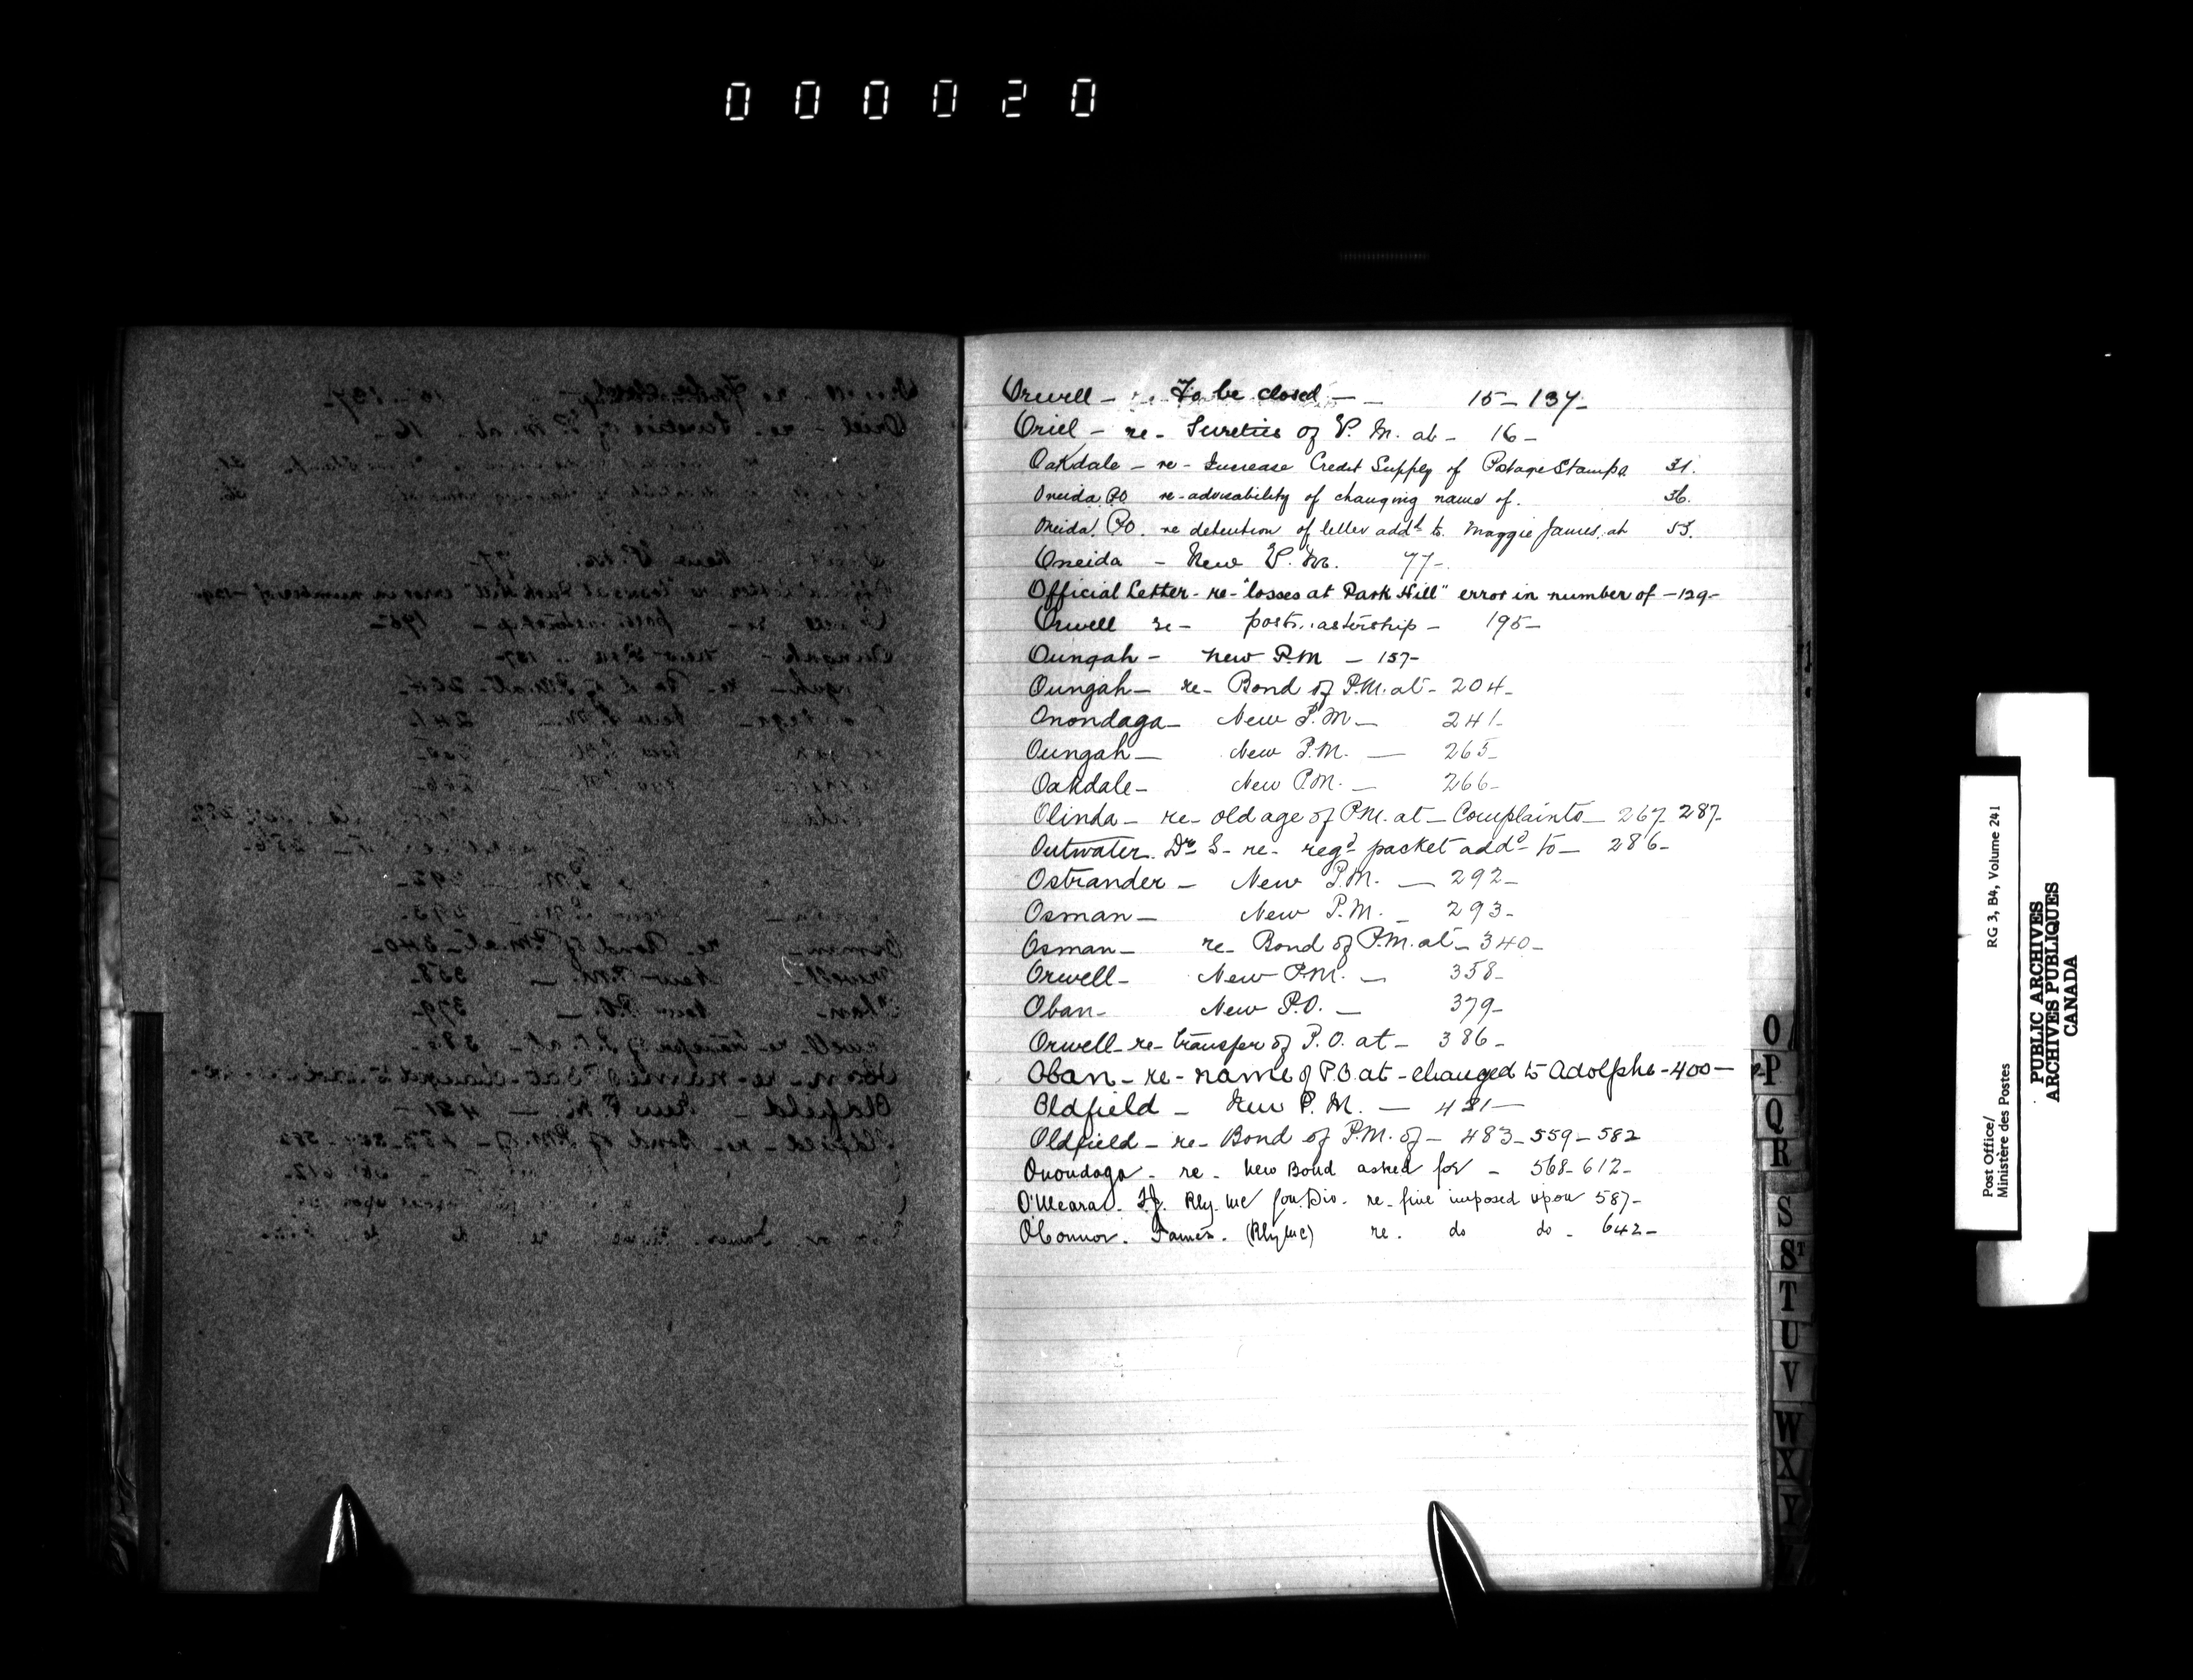 000020
Orwell - re To be closed - - 15 - 137 -
Oriel - re - Sureties of P. M. at - 16 -
Oakdale - re - Increase Credit Supply of Postage Stamps 31.
Oneida PO re - advisability of changing name of. 36.
Oneida PO. re detention of letter addd to Maggie James, at 53.
Oneida - New P. M. 77 -
Official Letter - re - "losses at Park Hill" error in number of - 129 -
Orwell re - postmastership - 195 -
Oungah - New P.M - 157 -
Oungah - re - Bond of P.M. at - 204 -
Onondaga - New P.M - 241 -
Oungah - New P.M. - 265 -
Oakdale - New P.M. - 266 -
Olinda - re - old age of P.M. at - Complaints - 267 287 -
Outwater. Dr. S - re - regd packet addd to - 286 -
Ostrander - New P.M. - 292 -
Osman - New P.M. - 293 -
Osman - re - Bond of P.M. at - 340 -
Orwell - New P.M. - 358 -
Oban - New P.O. - 379 -
Orwell - re - transfer of P.O. at - 386 -
Oban - re - name of P.O at - changed to Adolphe - 400 -
Oldfield - New P. M. - 431 -
Oldfield - re - Bond of P.M. of - 483 - 559 - 582
Onondaga - re - New Bond asked for - 568 - 612 -
O'Meara. Rly. MC Lon. Div. re - fine imposed upon 587 -
O'Connor. James. (Rly MC) re. do do - 642 -
O
P
Q
R
S
ST
T
U
V
W
X
Y
Post Office/ RG 3, B4, Volume 241
Ministère des Postes
PUBLIC ARCHIVES
ARCHIVES PUBLIQUES
CANADA